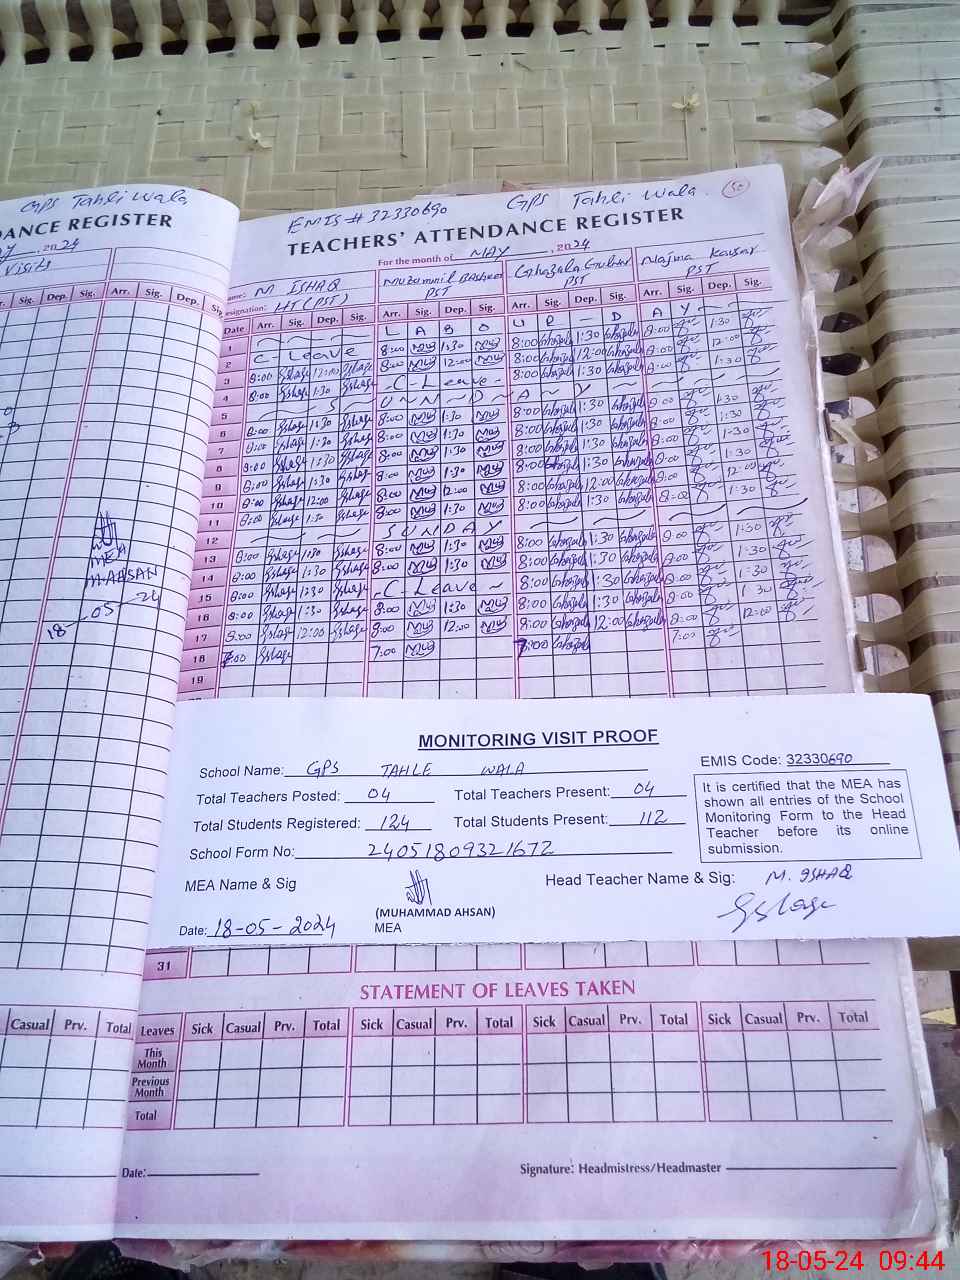 GPS Tahli Wala
DANCE REGISTER
, 2024
Visits
Sig. Dep. Sig. Arr. Sig. Dep. Sig.
MEA
M.AHSAN
18-05-24
Casual Prv. Total
EMIS # 32330690 GPS Tahli Wala 50
TEACHERS' ATTENDANCE REGISTER
For the month of MAY, 2024
Name: M ISHAQ Muzammil Basheer Ghazala Gulzar Najma Kausar
Designation: HT (PST) PST PST PST
Date Arr. Sig. Dep. Sig. Arr. Sig. Dep. Sig. Arr. Sig. Dep. Sig. Arr. Sig. Dep. Sig.
1 L A B O U R - D A Y
2 C-Leave 8:00 1:30 8:00 Ghazala 1:30 Ghazala 8:00 1:30
3 8:00 Ishaq 12:00 Ishaq 8:00 12:00 8:00 Ghazala 12:00 Ghazala 8:00 12:00
4 8:00 Ishaq 1:30 Ishaq C-Leave 8:00 Ghazala 1:30 Ghazala 8:00 1:30
5 S U N D A Y
6 8:00 Ishaq 1:30 Ishaq 8:00 1:30 8:00 Ghazala 1:30 Ghazala 8:00 1:30
7 8:00 Ishaq 1:30 Ishaq 8:00 1:30 8:00 Ghazala 1:30 Ghazala 8:00 1:30
8 8:00 Ishaq 1:30 Ishaq 8:00 1:30 8:00 Ghazala 1:30 Ghazala 8:00 1:30
9 8:00 Ishaq 1:30 Ishaq 8:00 1:30 8:00 Ghazala 1:30 Ghazala 8:00 1:30
10 8:00 Ishaq 12:00 Ishaq 8:00 12:00 8:00 Ghazala 12:00 Ghazala 8:00 12:00
11 8:00 Ishaq 1:30 Ishaq 8:00 1:30 8:00 Ghazala 1:30 Ghazala 8:00 1:30
12 S U N D A Y
13 8:00 Ishaq 1:30 Ishaq 8:00 1:30 8:00 Ghazala 1:30 Ghazala 8:00 1:30
14 8:00 Ishaq 1:30 Ishaq 8:00 1:30 8:00 Ghazala 1:30 Ghazala 8:00 1:30
15 8:00 Ishaq 1:30 Ishaq C-Leave 8:00 Ghazala 1:30 Ghazala 8:00 1:30
16 8:00 Ishaq 1:30 Ishaq 8:00 1:30 8:00 Ghazala 1:30 Ghazala 8:00 1:30
17 8:00 Ishaq 12:00 Ishaq 8:00 12:00 8:00 Ghazala 12:00 Ghazala 8:00 12:00
18 7:00 Ishaq 7:00 7:00 Ghazala 7:00
19
MONITORING VISIT PROOF
School Name: GPS TAHLE WALA EMIS Code: 32330690
Total Teachers Posted: 04 Total Teachers Present: 04
Total Students Registered: 124 Total Students Present: 112
School Form No: 24051809321672
It is certified that the MEA has
shown all entries of the School
Monitoring Form to the Head
Teacher before its online
submission.
MEA Name & Sig Head Teacher Name & Sig: M. ISHAQ
(MUHAMMAD AHSAN) Ishaq
Date: 18-05-2024 MEA
31
STATEMENT OF LEAVES TAKEN
Leaves Sick Casual Prv. Total Sick Casual Prv. Total Sick Casual Prv. Total Sick Casual Prv. Total
This
Month
Previous
Month
Total
Date: Signature: Headmistress/Headmaster
18-05-24 09:44